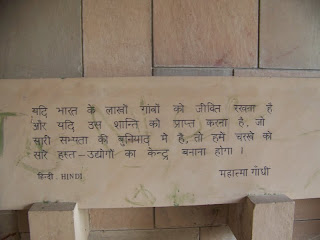 यदि भारत के लाखों गांवों को जीवित रखना है
और यदि उस शान्ति को प्राप्त करना है, जो
सारी सभ्यता की बुनियाद में है, तो हमें चरखे को
सारे हस्त-उद्योगों का केन्द्र बनाना होगा ।
हिन्दी . HINDI महात्मा गाँधी